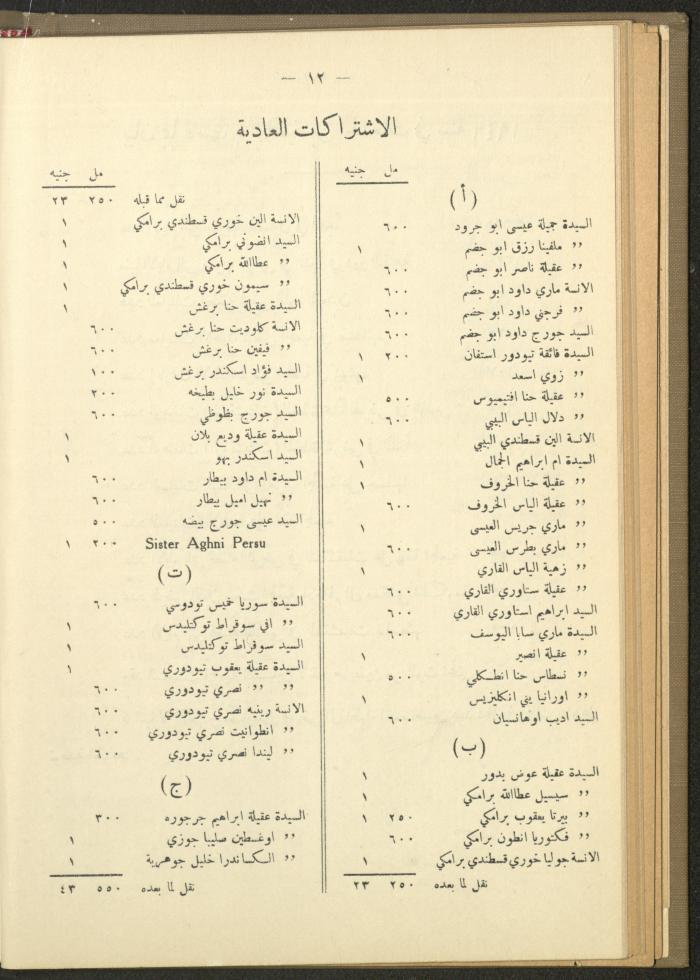 — ١٢ —
الاشتراكات العادية
مل جنيه
(أ)
السيدة جميلة عيسى ابو جرود ٦٠٠
,, ملفينا رزق ابو جضم ١
,, عقيلة ناصر ابو جضم ٦٠٠
الانسة ماري داود ابو جضم ٦٠٠
,, فرجني داود ابو جضم ٦٠٠
السيد جورج داود ابو جضم ٦٠٠
السيدة فائقة تيودور استفان ٢٠٠ ١
,, زوي اسعد ١
,, عقيلة حنا افتيميوس ٥٠٠
,, دلال الياس البيبي ٦٠٠
الانسة الين قسطندي البيبي ١
السيدة ام ابراهيم الجمال ١
,, عقيلة حنا الخروف ١
,, عقيلة الياس الخروف ٦٠٠
,, ماري جريس العيسى ١
,, ماري بطرس العيسى ٦٠٠
,, زهية الياس القاري ١
,, عقيلة ستاوري القاري ٦٠٠
السيد ابراهيم استاوري القاري ٦٠٠
السيدة ماري سابا اليوسف ٦٠٠
,, عقيلة انصير ١
,, نسطاس حنا انطكلي ٥٠٠
,, اورانيا يني انكليزيس ١
السيد اديب اوهانسيان ٦٠٠
(ب)
السيدة عقيلة عوض بدور ١
,, سيسيل عطاالله برامكي ١
,, بيرتا يعقوب برامكي ٢٥٠ ١
,, فكتوريا انطون برامكي ٦٠٠
الانسة جوليا خوري قسطندي برامكي ١
نقل لما بعده ٢٥٠ ٢٣
مل جنيه
نقل مما قبله ٢٥٠ ٢٣
الانسة الين خوري قسطندي برامكي ١
السيد انضوني برامكي ١
,, عطاالله برامكي ١
,, سيمون خوري قسطندي برامكي ١
السيدة عقيلة حنا برغش ١
الانسة كلوديت حنا برغش ٦٠٠
,, فيفين حنا برغش ٦٠٠
السيد فؤاد اسكندر برغش ١٠٠
السيدة نور خليل بطيخه ٢٠٠
السيد جورج بظوظي ٦٠٠
السيدة عقيلة وديع بلان ١
السيد اسكندر بهو ١
السيدة ام داود بيطار ٦٠٠
,, نهيل اميل بيطار ٦٠٠
السيد عيسى جورج بيضه ٥٠٠
Sister Aghni Persu ٢٠٠ ١
(ت)
السيدة سوريا خميس تودوسي ٦٠٠
,, افي سوقراط توكتليدس ١
السيد سوقراط توكتليدس ١
السيدة عقيلة يعقوب تيودوري ١
,, ,, نصري تيودوري ٦٠٠
الانسة رينيه نصري تيودوري ٦٠٠
,, انطوانيت نصري تيودوري ٦٠٠
,, ليندا نصري تيودوري ٦٠٠
(ج)
السيدة عقيلة ابراهيم جرجوره ٣٠٠
,, اوغسطين صليبا جوزي ١
,, الكساندرا خليل جوهرية ١
نقل لما بعده ٥٥٠ ٤٣